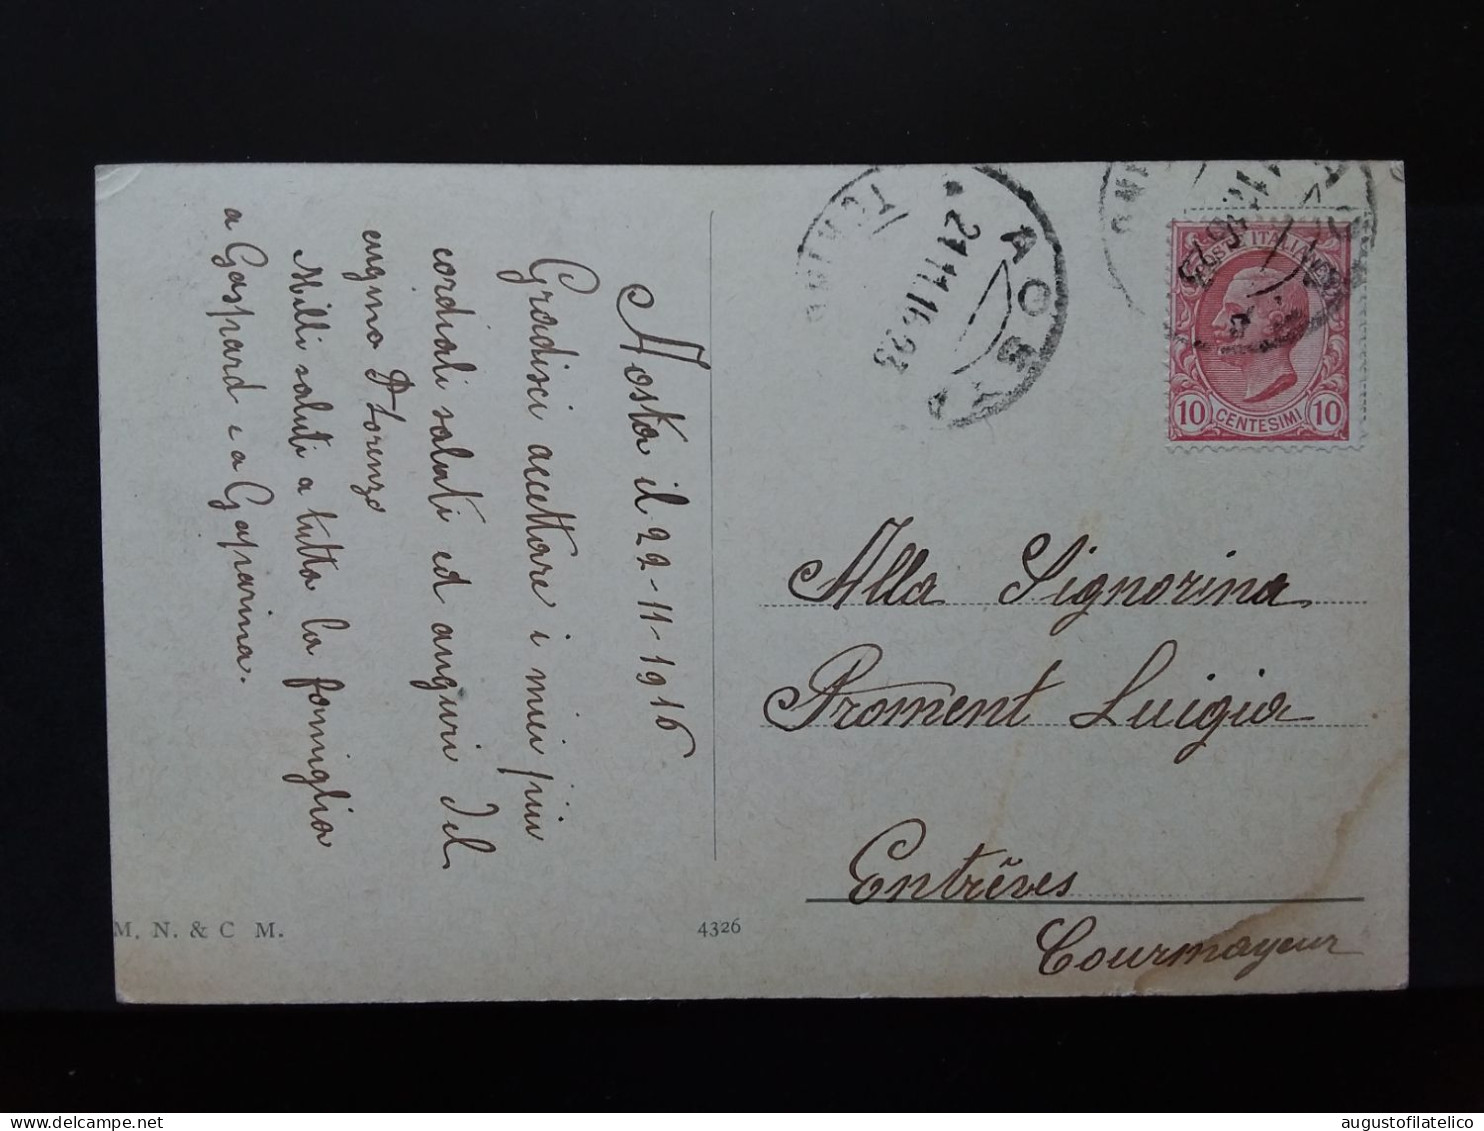 Aosta il 22-11-1916
Gradisci accettare i miei più
cordiali saluti ed auguri Il
cugino D Lorenzo
Milli saluti a tutta la famiglia
a Gaspard e a Gasparina.
M. N. & C M.
4326
AOSTA
TORINO
21.11.16.23
POSTE ITALIANE
10 CENTESIMI 10
Alla Signorina
Proment Luigia
Entrêves
Courmayeur
augustofilatelico